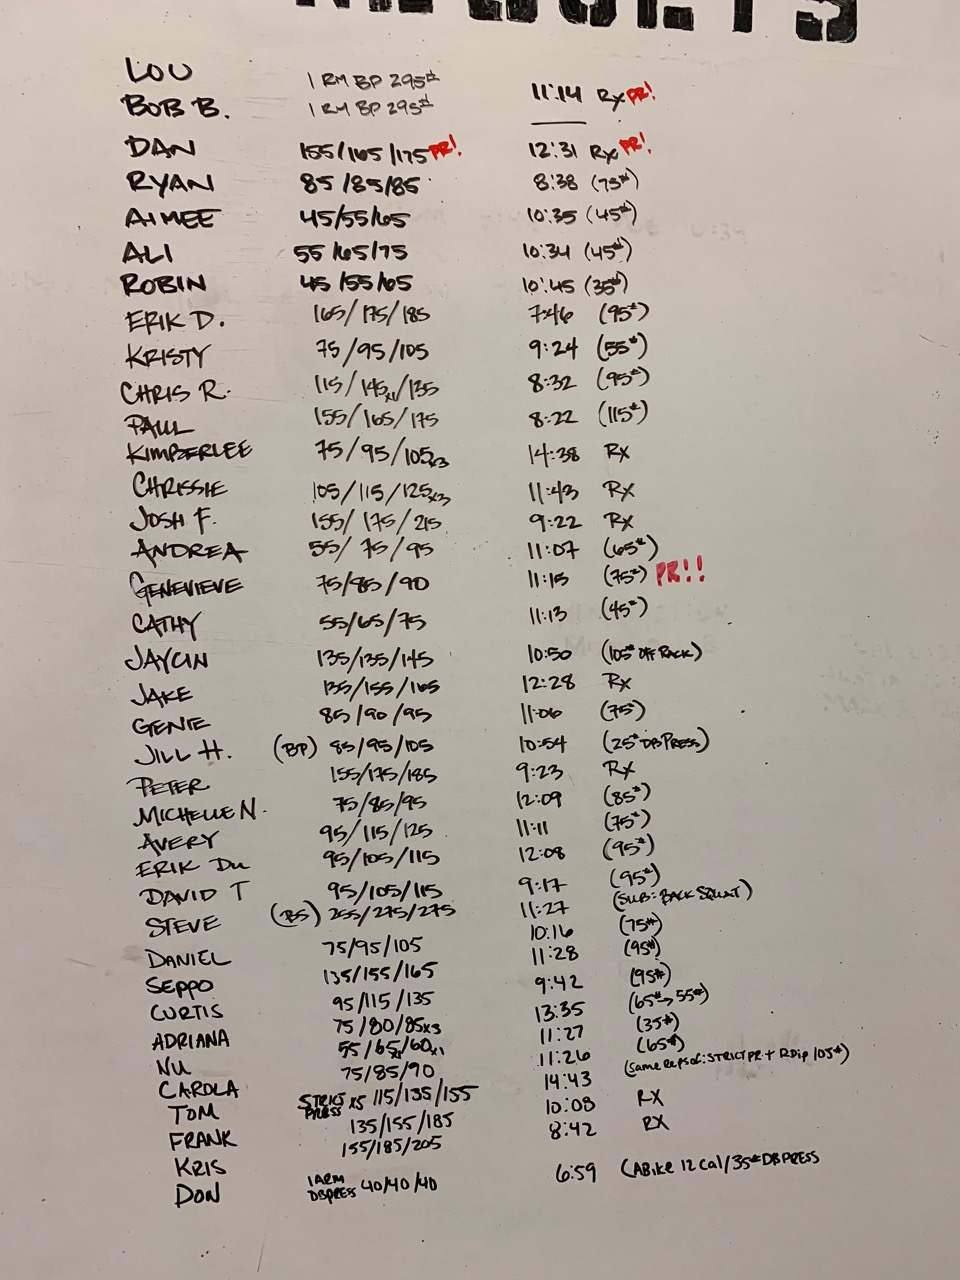 LOU 1 RM BP 295# 11:14 Rx PR!
BOB B. 1 RM BP 295# —
DAN 155/165/175 PR! 12:31 Rx PR!
RYAN 85/85/85 8:38 (75#)
AIMEE 45/55/65 10:35 (45#)
ALI 55/65/75 10:34 (45#)
ROBIN 45/55/65 10:45 (35#)
ERIK D. 165/175/185 7:46 (95#)
KRISTY 75/95/105 9:24 (55#)
CHRIS R. 115/145x1/135 8:32 (95#)
PAUL 155/165/175 8:22 (115#)
KIMBERLEE 75/95/105x3 14:38 RX
CHRISSIE 105/115/125x3 11:43 RX
JOSH F. 155/175/215 9:22 RX
ANDREA 55/75/95 11:07 (65#)
GENEVIEVE 75/85/90 11:15 (75#) PR!!
CATHY 55/65/75 11:13 (45#)
JAYCIN 135/135/145 10:50 (105# OFF RACK)
JAKE 135/155/165 12:28 RX
GENIE 85/90/95 11:06 (75#)
JILL H. (BP) 85/95/105 10:54 (25# DB PRESS)
PETER 155/175/185 9:23 RX
MICHELLE N. 75/85/95 12:09 (85#)
AVERY 95/115/125 11:11 (75#)
ERIK Du 95/105/115 12:08 (95#)
DAVID T 95/105/115 9:17 (95#)
STEVE (BS) 255/275/275 11:27 (SUB: BACK SQUAT)
DANIEL 75/95/105 10:16 (75#)
SEPPO 135/155/165 11:28 (95#)
CURTIS 95/115/135 9:42 (95#)
ADRIANA 75/80/85x3 13:35 (65#→55#)
NU 55/65x1/60x1 11:27 (35#)
CAROLA 75/85/90 11:26 (65#)
TOM STRICT PRESS x5 115/135/155 14:43 (same reps of: STRICT PR + RDip 105#)
FRANK 135/155/185 10:08 RX
KRIS 155/185/205 8:42 RX
DON 1 ARM DB PRESS 40/40/40 6:59 (ABike 12 Cal/35# DB PRESS